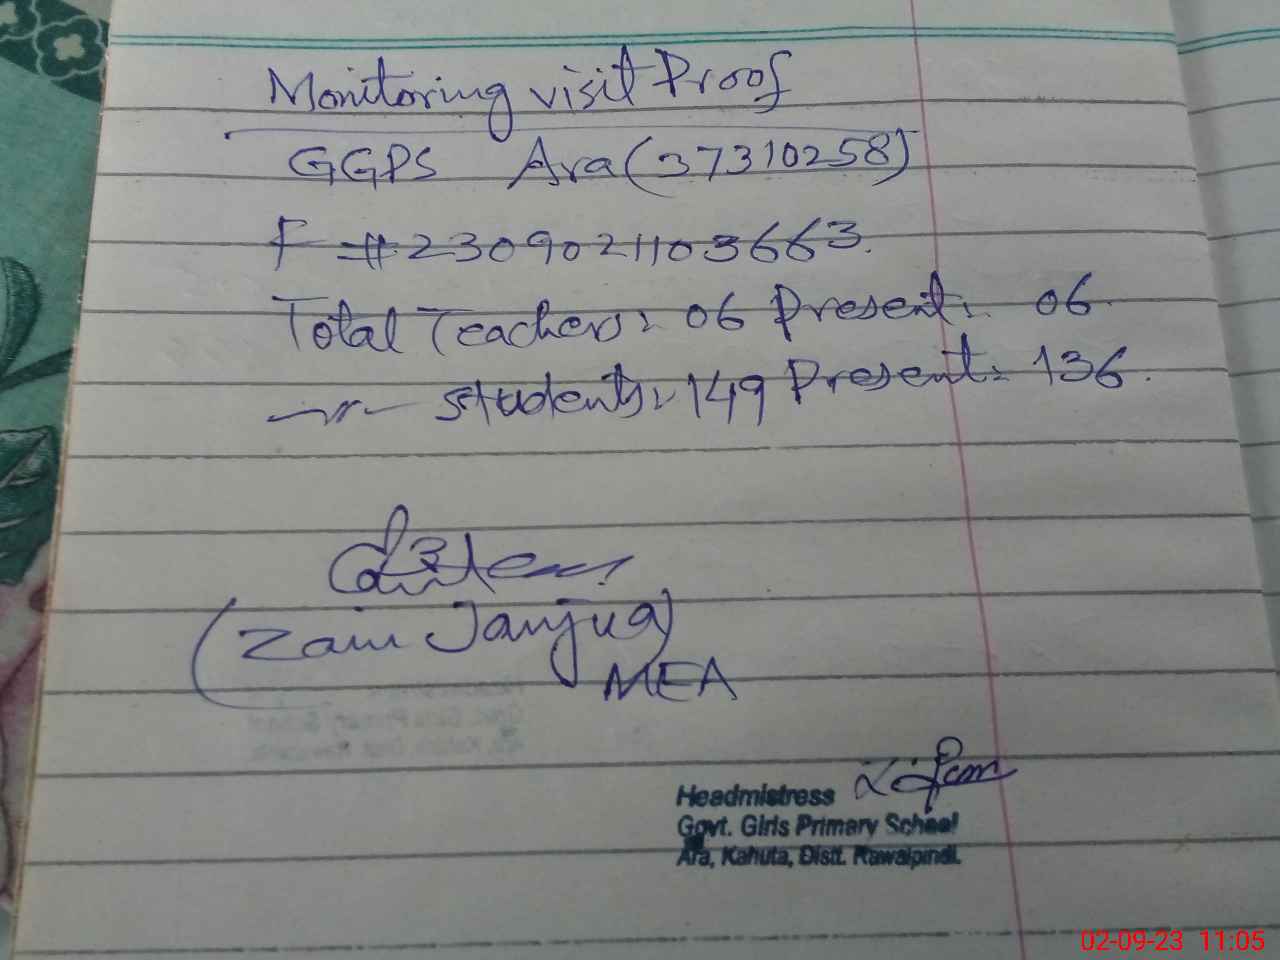 Monitoring visit Proof
GGPS Ara (37310258)
F # 2309021103663.
Total Teachers: 06 Present: 06
-〃- students: 149 Present: 136.
(Zain Janjua)
MEA
Headmistress
Govt. Girls Primary School
Ara, Kahuta, Distt. Rawalpindi.
02-09-23 11:05